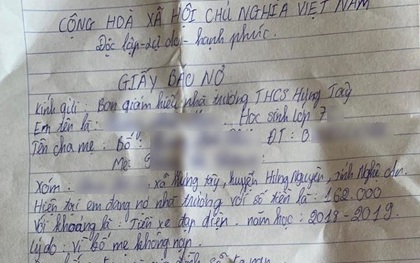 CỘNG HOÀ XÃ HỘI CHỦ NGHĨA VIỆT NAM
Độc lập - tự do - hạnh phúc.
GIẤY BÁO NỢ
Kính gửi: Ban giám hiệu nhà trường THCS Hưng Tây
Em tên là: Học sinh lớp 7
Tên cha mẹ: Bố: ĐT: 0
Mẹ:
Xóm: , xã Hưng Tây, huyện Hưng Nguyên, tỉnh Nghệ An.
Hiện tại em đang nợ nhà trường với số tiền là: 162.000
Với khoảng là: Tiền xe đạp điện. năm học: 2018-2019.
Lý do: vì bố mẹ không nạp.